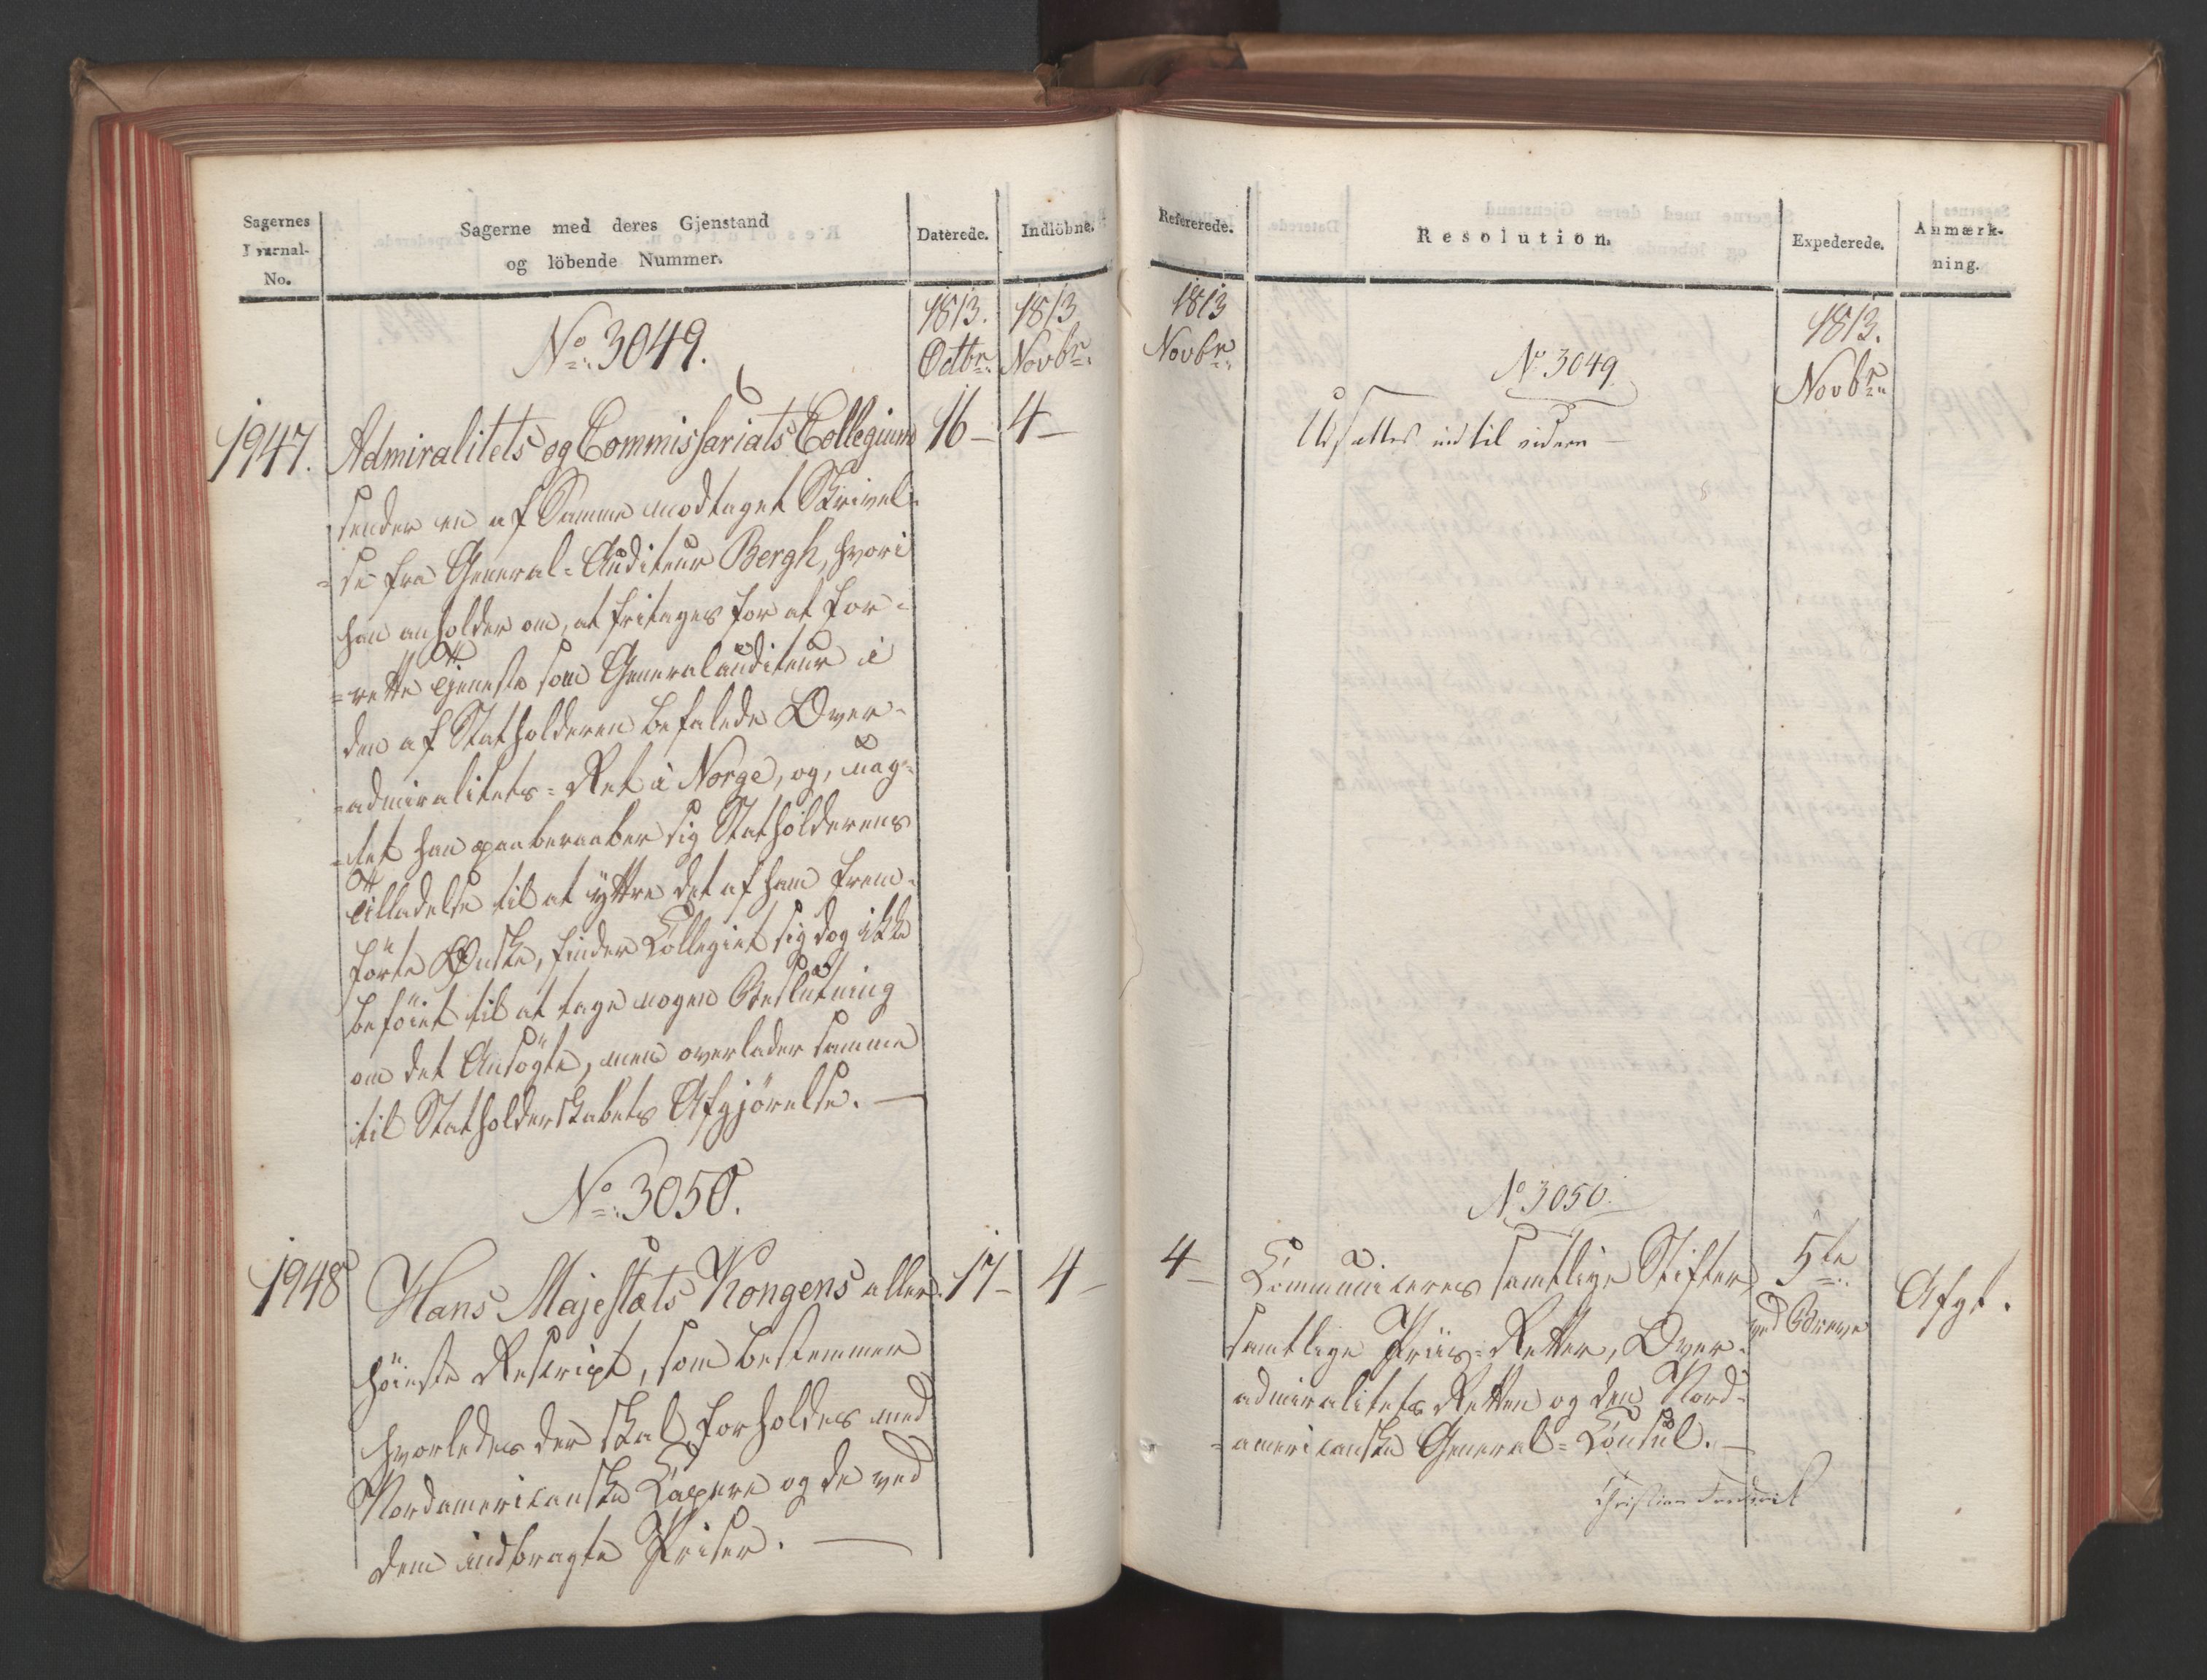 Sagernes
Journal-
No.
Sagerne med deres Gjenstand
og löbende Nummer.
Daterede.
Indlöbne.
1813.
Octbr.
1813
Novbr.
No. 3049.
1947.
Admiralitets og Commissariats Collegium
16 –
4 –
sender en af Samme modtaget Skrivel-
=se fra General=Auditeur Bergh, hvori
han anholder om, at fritages for at for-
=rette Tjeneste som Generalauditeur i
den af Statholderen befalede Over-
=admiralitets=Ret i Norge, og, uag-
=tet han paaberaaber sig Statholderens
Tilladelse til at yttre det af ham frem-
förte Ønske, finder Collegiet sig dog ikke
beföiet til at tage nogen Beslutning
om det Ansögte, men overlader samme
til Statholderskabets Afgjörelse. —
No. 3050.
1948
Hans Majestæts Kongens aller-
17 –
4 –
höieste Rescript, som bestemmer
hvorledes der skal forholdes med
Nordamericanske Capere og de ved
dem indbragte Priser. —
Refererede.
Resolution.
Expederede.
Anmærk-
ning.
1813
Novbr.
1813.
Novbr.
No. 3049.
Udsættes indtil videre —
No. 3050.
4 –
Communiceres samtlige Stifter,
samtlige Priis=Retter, Over-
admiralitets Retten og den Nord-
=americanske General=Consul. —
5te
ved Breve
Afgt.
Christian Frederik